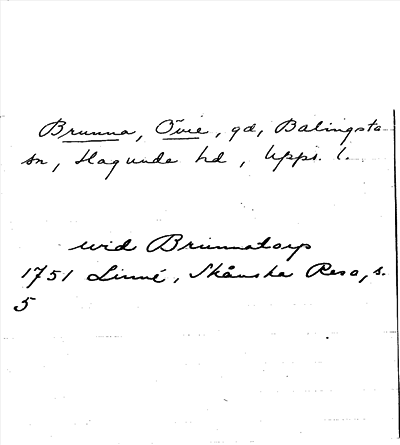 Brunna, Övre, gd, Balingsta
sn, Hagunda hd, Upps. l.
wid Brunnatorp
1751 Linné, Skånska Resa, s.
5